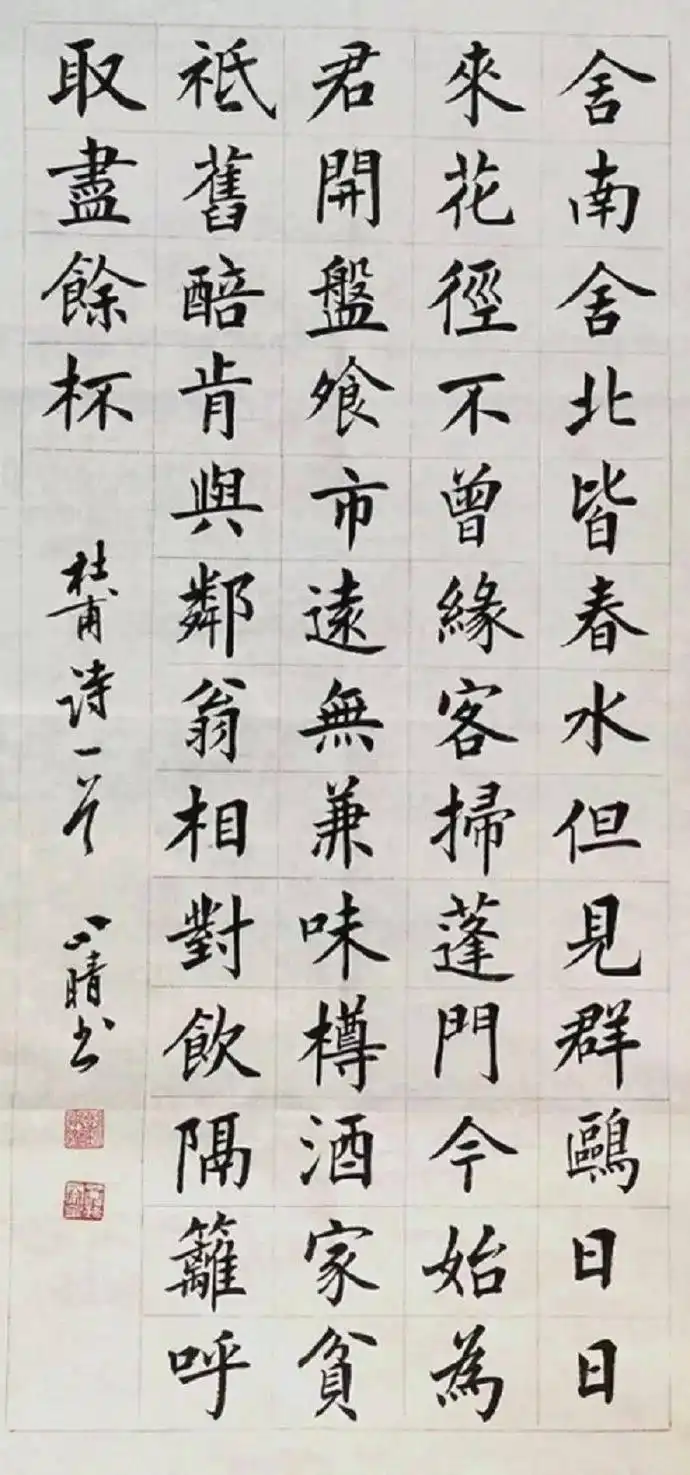 舍南舍北皆春水但見群鷗日日
來花徑不曾緣客掃蓬門今始為
君開盤飧市遠無兼味樽酒家貧
祇舊醅肯與鄰翁相對飲隔籬呼
取盡餘杯
杜甫詩一首
晴书